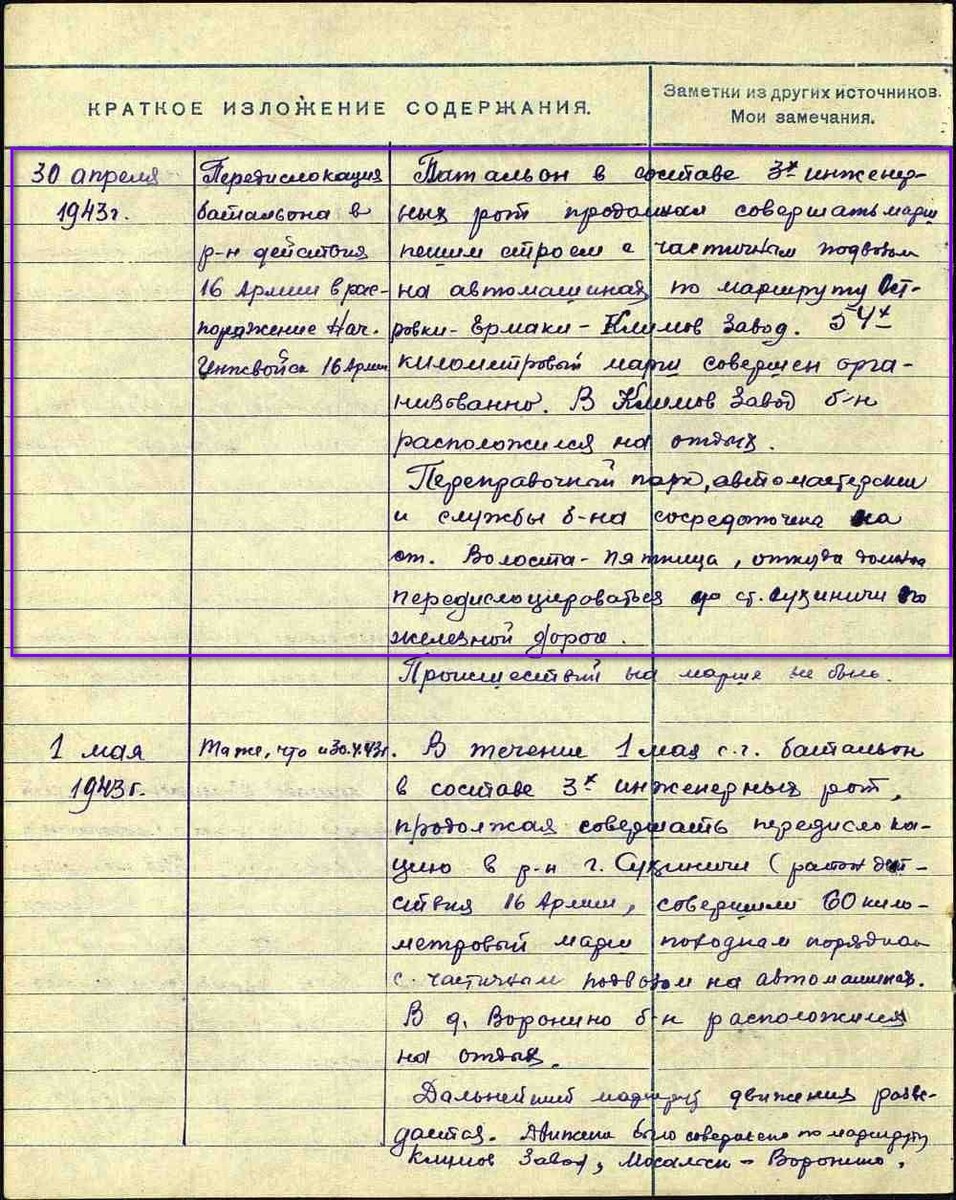 КРАТКОЕ ИЗЛОЖЕНИЕ СОДЕРЖАНИЯ.
Заметки из других источников.
Мои замечания.
30 апреля
1943г.
Передислокация
батальона в
р-н действия
16 Армии в рас-
поряжение Нач.
Инжвойск 16 Армии
Батальон в составе 3х инженер-
ных рот продолжал совершать марш
пешим строем с частичным подвозом
на автомашинах по маршруту Ост-
ровки - Ермаки - Климов Завод. 54х
километровый марш совершен орга-
низованно. В Климов Завод б-н
расположился на отдых.
Переправочный парк, автомастерские
и службы б-на сосредоточена на
ст. Волоста - Пятница, откуда должна
передислоцироваться до ст. Сухиничи по
железной дороге.
Происшествий на марше не было.
1 мая
1943г.
Та же, что и 30.4.43г.
В течение 1 мая с.г. батальон
в составе 3х инженерных рот,
продолжая совершать передислока-
цию в р-н г. Сухиничи (район дей-
ствия 16 Армии, совершили 60 кило-
метровый марш походным порядком
с частичным подвозом на автомашинах.
В д. Воронино б-н расположился
на отдых.
Дальнейший маршрут движения разве-
дается. Движение было совершено по маршруту
Климов Завод, Мосальск - Воронино.